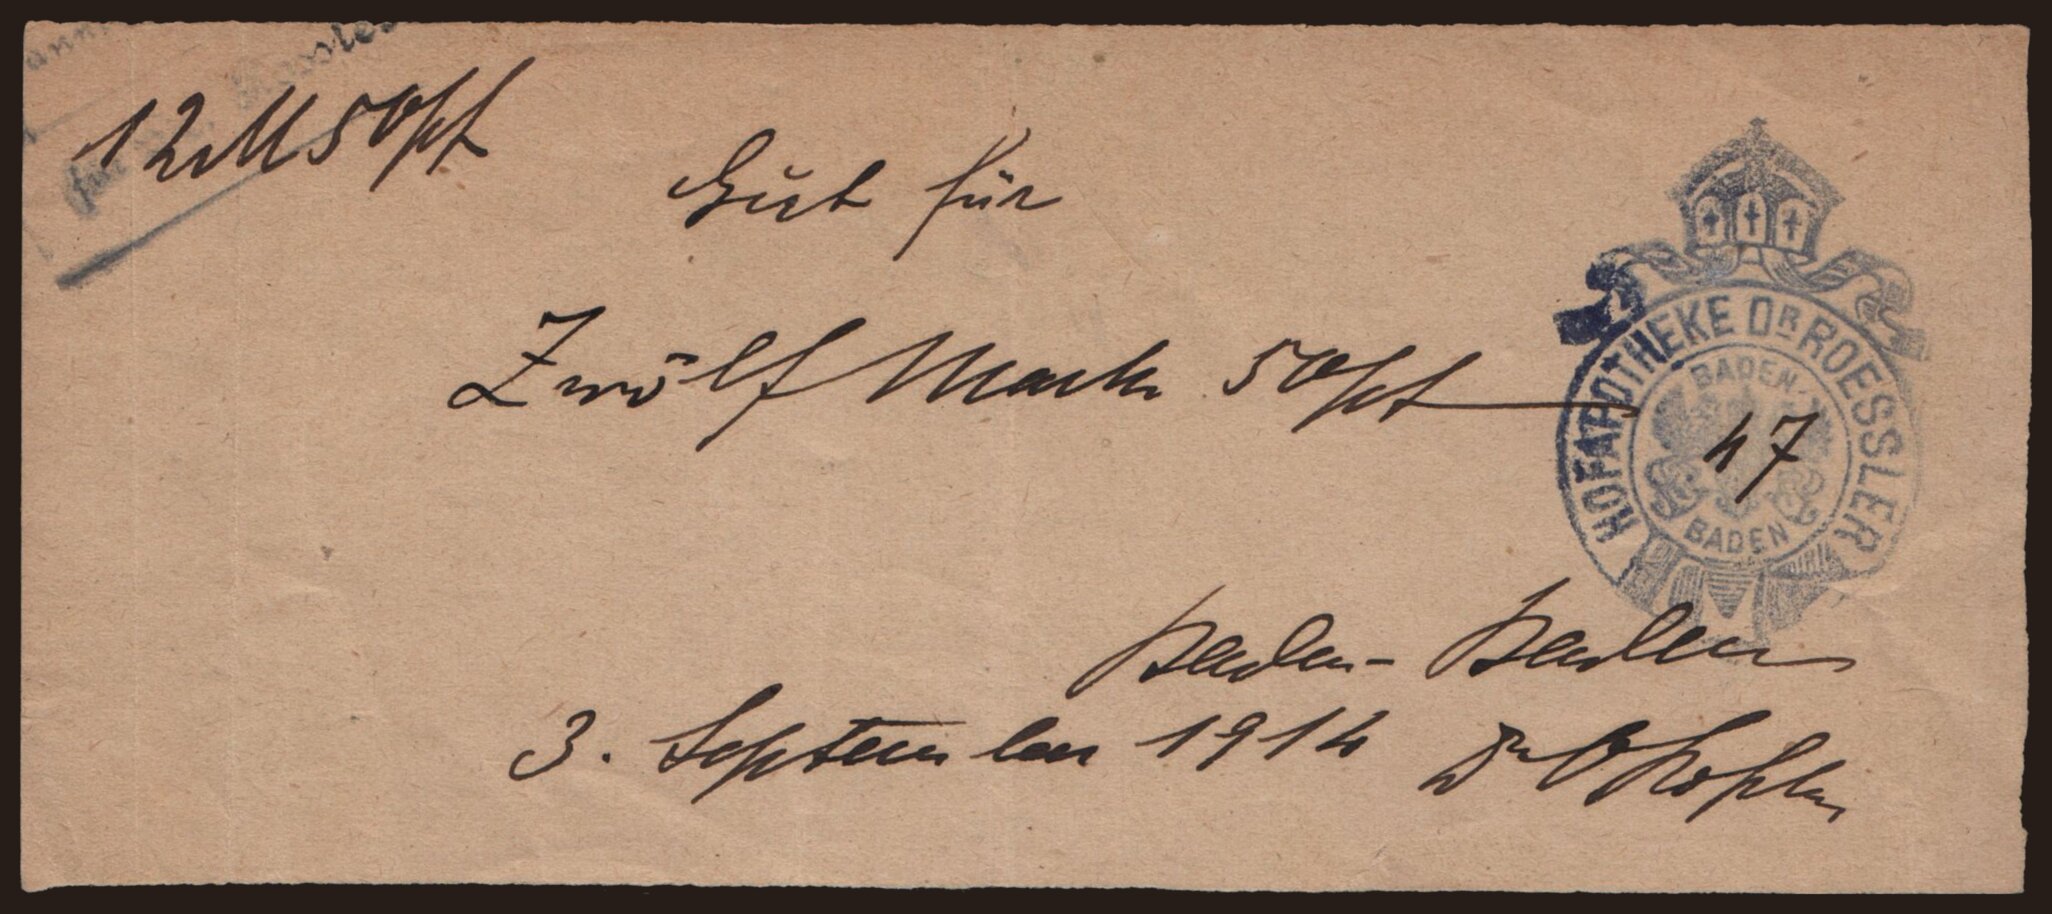 12 M 50 pf
Gut für
Zwölf Mark 50 pf
HOFAPOTHEKE DR ROESSLER
BADEN-
47
BADEN
Baden-Baden
3. September 1914 Dr O Rößler